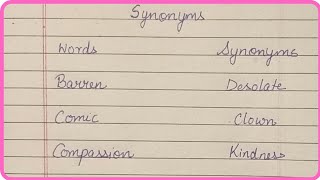 Synonyms
Words Synonyms
Barren Desolate
Comic Clown
Compassion Kindness